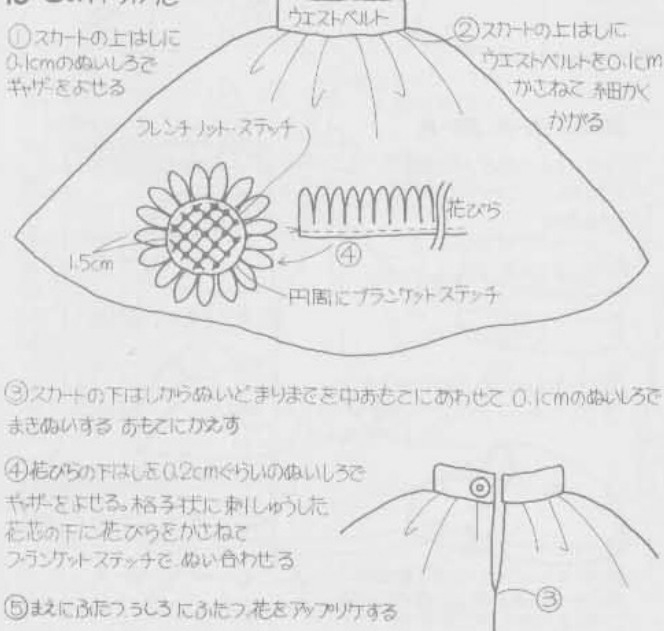 ウエストベルト
①スカートの上はしに
0.1cmのぬいしろで
ギャザーをよせる
②スカートの上はしに
ウエストベルトを0.1cm
かさねて 細かく
かがる
フレンチノット・ステッチ
花びら
1.5cm
④
円周にブランケットステッチ
③スカートの下はしからぬいどまりまでを中おもてにあわせて 0.1cmのぬいしろで
まきぬいする おもてにかえす
④花びらの下はしを0.2cmぐらいのぬいしろで
ギャザーをよせる。格子状に刺しゅうした
花芯の下に花びらをかさねて
ブランケットステッチで ぬい合わせる
③
⑤まえにふたつ うしろにふたつ 花をアップリケする